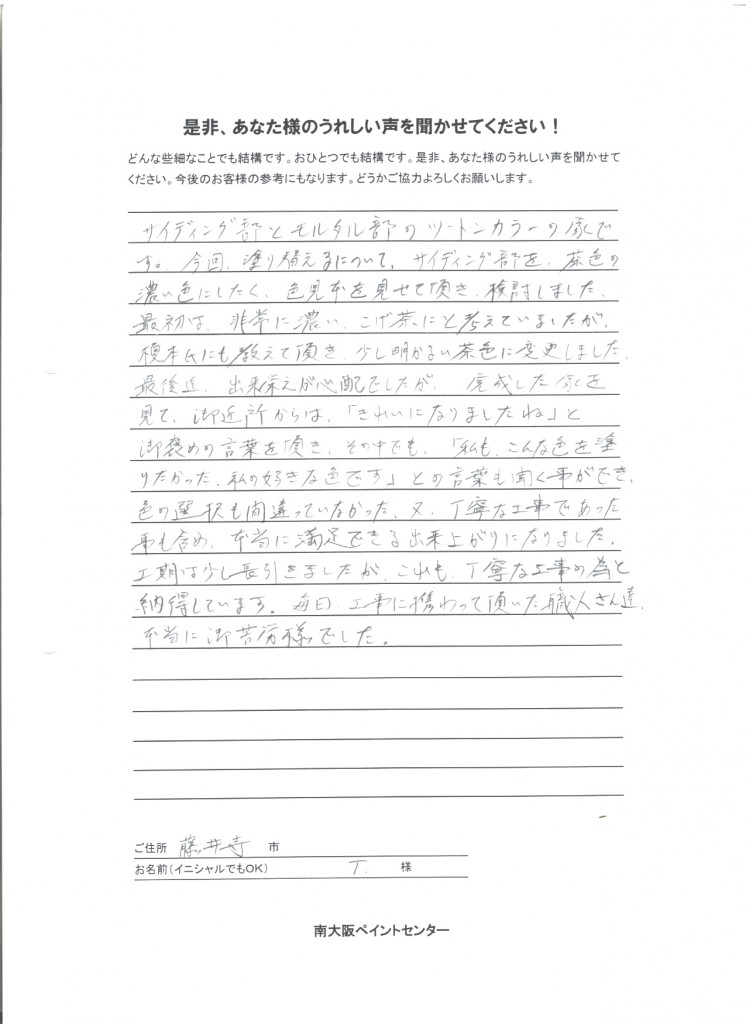 是非、あなた様のうれしい声を聞かせてください!
どんな些細なことでも結構です。おひとつでも結構です。是非、あなた様のうれしい声を聞かせて
ください。今後のお客様の参考にもなります。どうかご協力よろしくお願いします。
サイディング部とモルタル部のツートンカラーの家で
す。今回、塗り替えるについて、サイディング部を、茶色の
濃い色にしたく、色見本を見せて頂き、検討しました。
最初は、非常に濃い、こげ茶にと考えていましたが、
榎本氏にも教えて頂き、少し明かるい茶色に変更しました。
最後迄、出来栄えが心配でしたが、完成した家を
見て、御近所からは、「きれいになりましたね」と
御褒めの言葉を頂き、その中でも、「私も、こんな色を塗
りたかった、私の好きな色です」との言葉も聞く事ができ、
色の選択も間違っていなかった、又、丁寧な工事であった
事も含め、本当に満足できる出来上がりになりました。
工期は少し長引きましたが、これも、丁寧な工事の為と
納得しています。毎日、工事に携わって頂いた職人さん達、
本当に御苦労様でした。
ご住所 藤井寺 市
お名前(イニシャルでもOK) T. 様
南大阪ペイントセンター